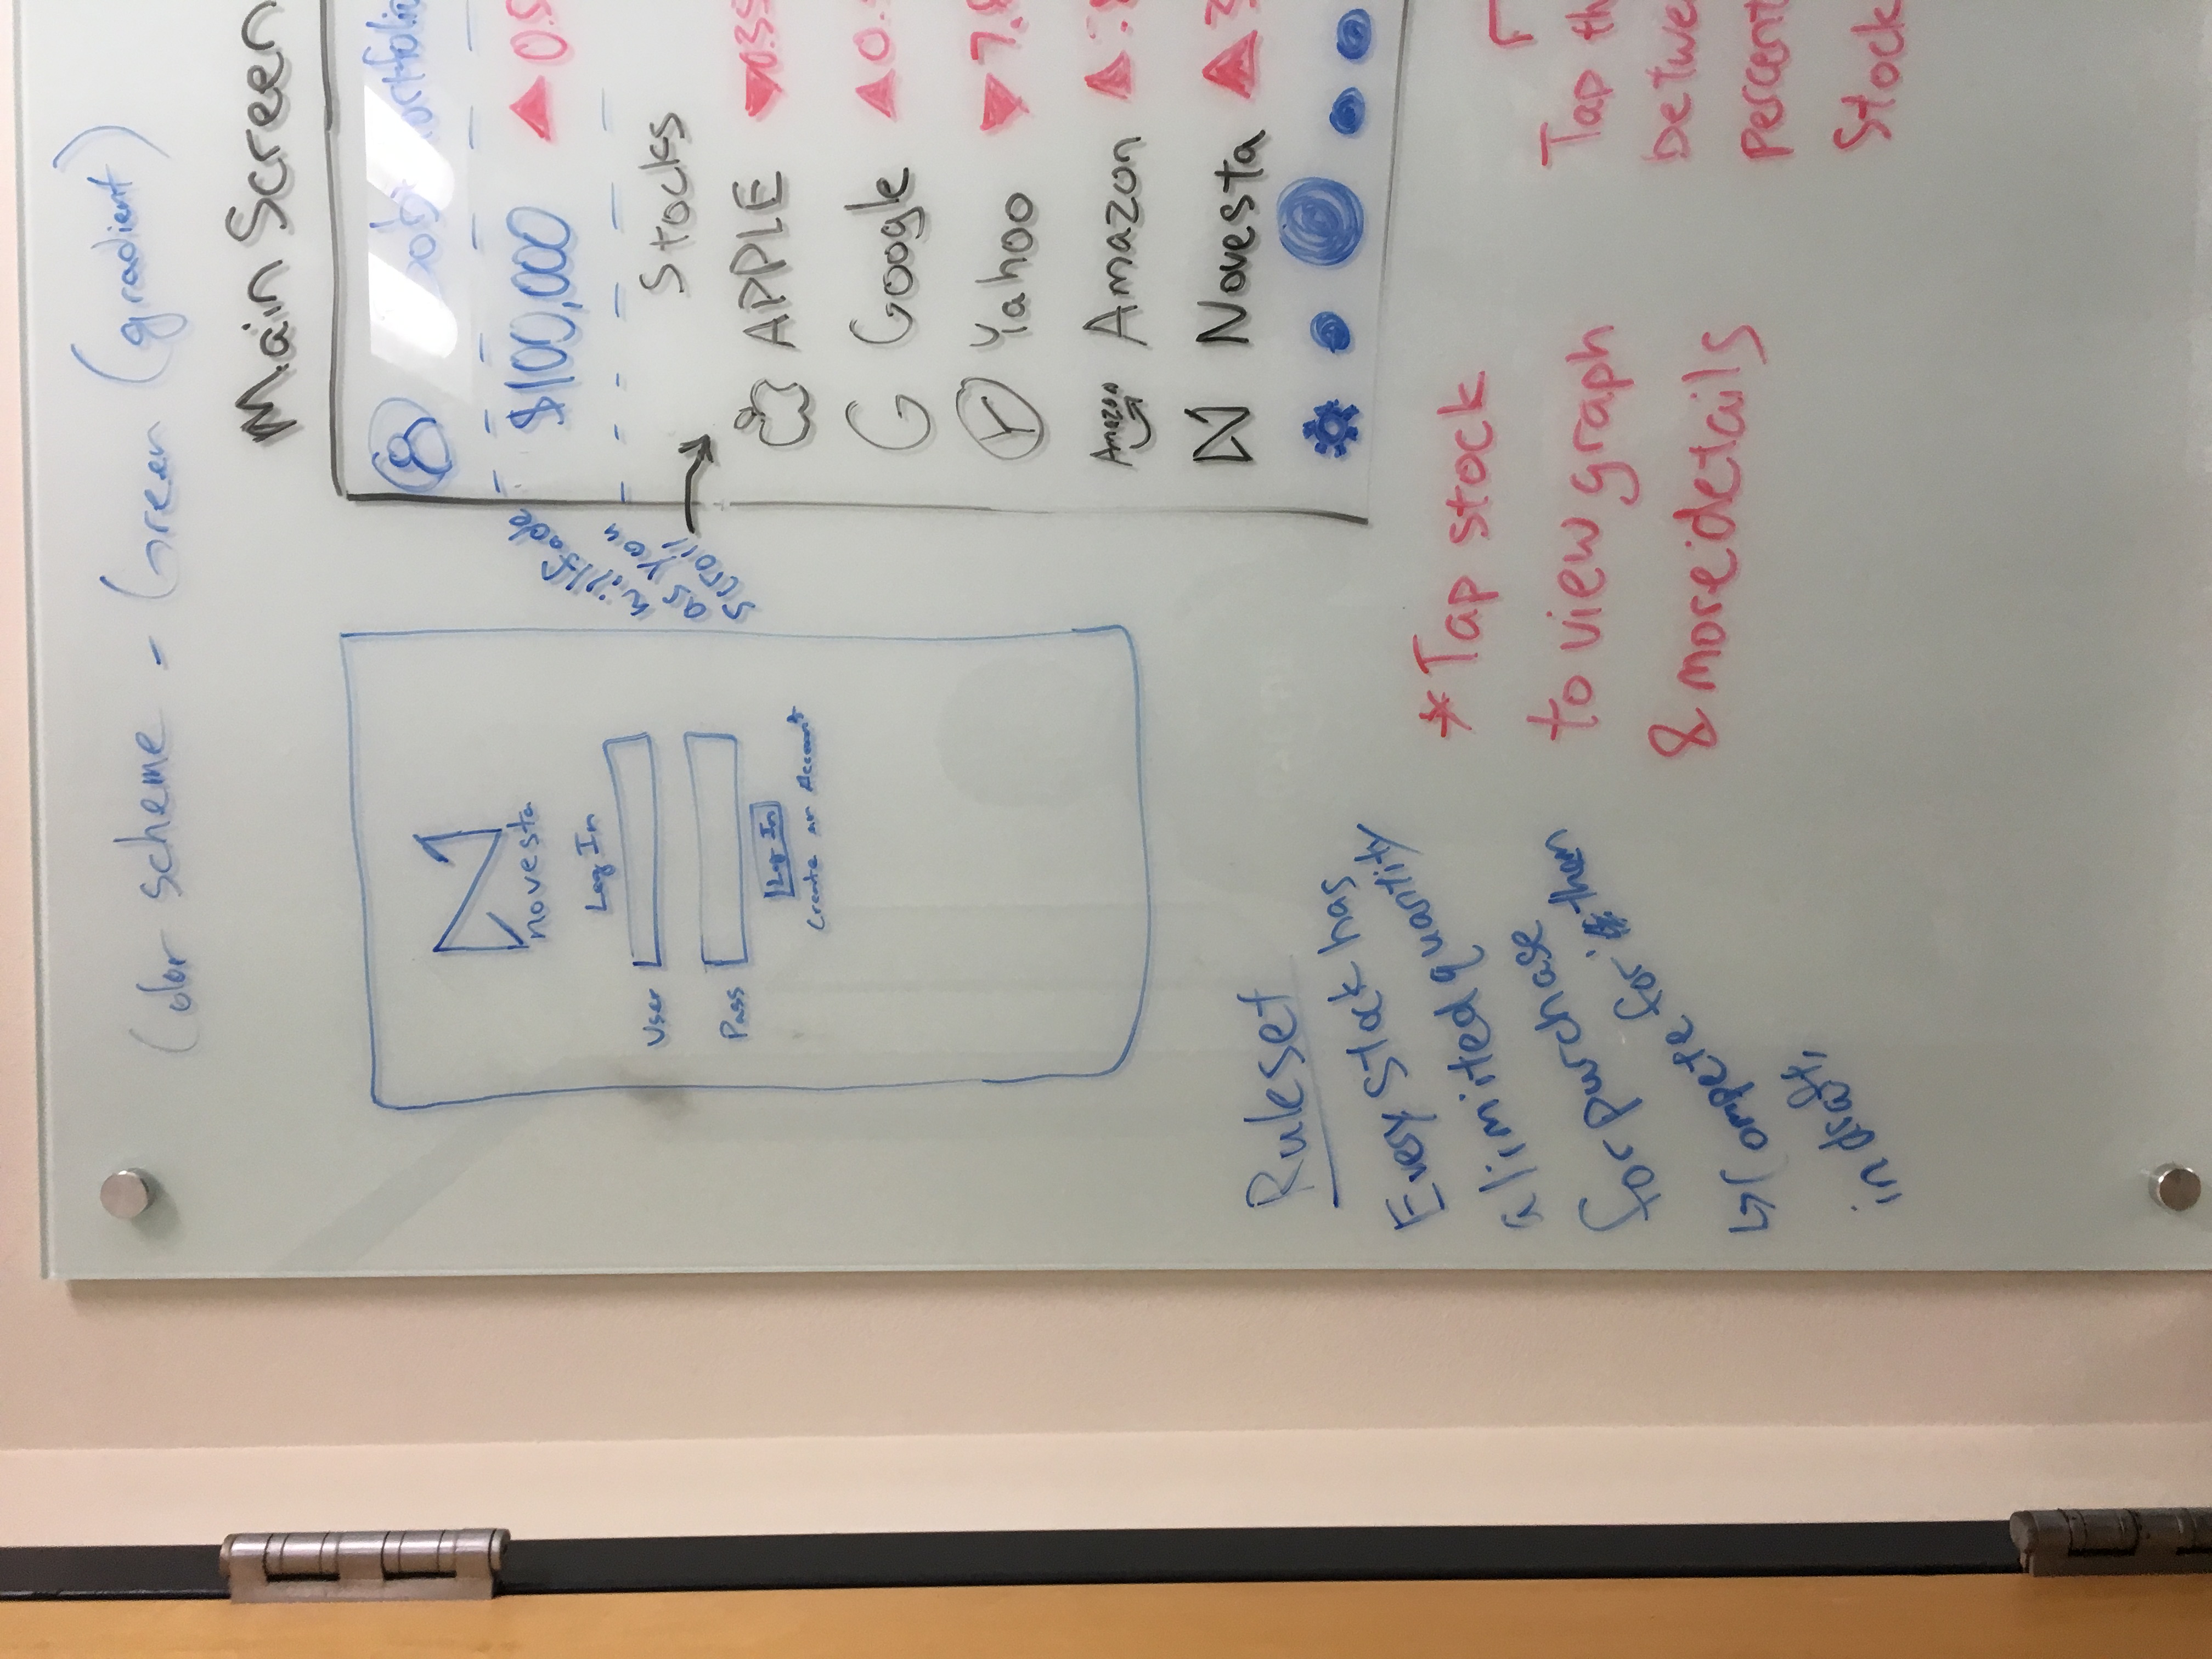 Color scheme - Green (gradient)
Main Screen
novesta
Log In
User
Pass
Log In
Create an Account
will fade
as you
scroll
$100,000 ▲ 0.5
Stocks
APPLE ▼ 0.35
G Google ▲ 0.
Y Yahoo ▼ 7.8
Amazon Amazon ▲
N Novesta ▲ 3
Ruleset
Every stock has
a limited quantity
for purchase
↳ Compete for them
in draft,
* Tap stock
to view graph
& more details
Tap th
betwe
percent
Stock